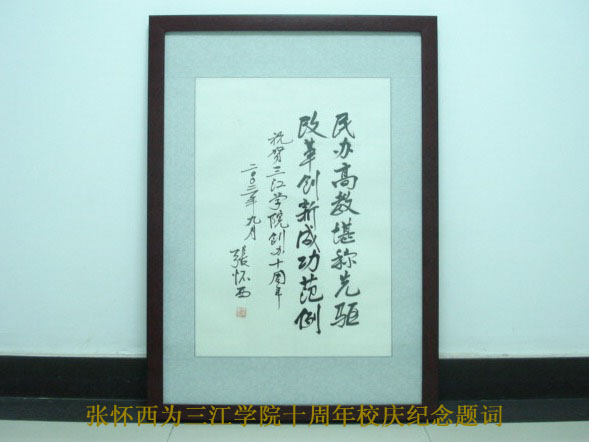 民办高教堪称先驱
改革创新成功范例
祝贺三江学院创办十周年
二〇〇二年九月
張怀西
张怀西为三江学院十周年校庆纪念题词